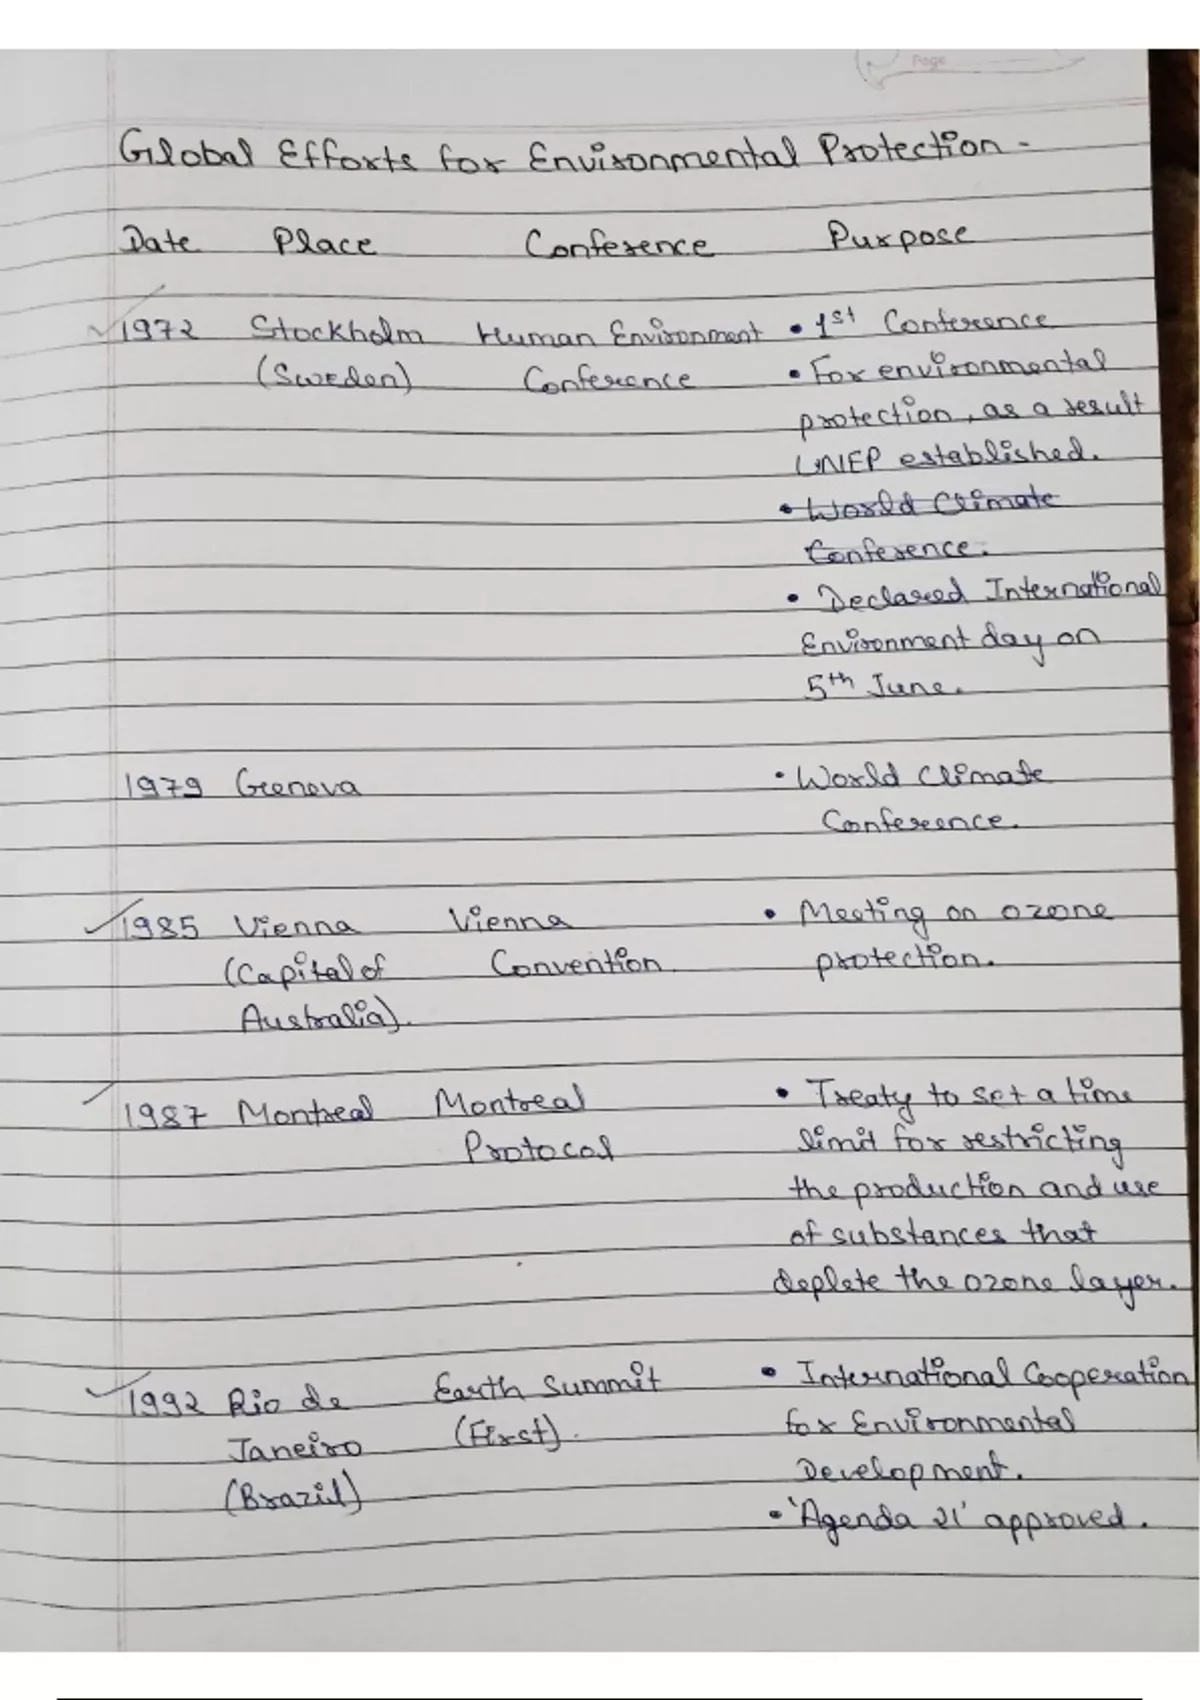 Page
Global Efforts for Environmental Protection -
Date Place Conference Purpose
1972 Stockholm Human Environment • 1st Conference
(Sweden) Conference • For environmental
protection, as a result
UNEP established.
• World Climate
Conference.
• Declared International
Environment day on
5th June.
1979 Geneva • World Climate
Conference.
1985 Vienna Vienna • Meeting on ozone
(Capital of Convention protection.
Australia).
1987 Montreal Montreal • Treaty to set a time
Protocol limit for restricting
the production and use
of substances that
deplete the ozone layer.
1992 Rio de Earth Summit • International Cooperation
Janeiro (First). for Environmental
(Brazil) Development.
• 'Agenda 21' approved.